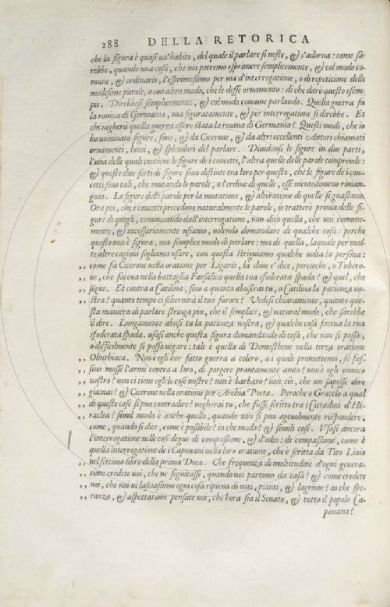 288 DELLA RETORICA
che la figura è quasi un'habito, del quale il parlare si veste, & s'adorna: come sa-
rebbe, quando una cosa, che noi potremo esprimere semplicemente, & col modo co-
mune, & ordinario, l'esprimessimo per via d'interrogatione, o di repetitione delle
medesime parole, o con altro modo, che le desse ornamento: di che darò questo esem-
pio. Direbbesi semplicemente, & col modo comune parlando. Quella guerra fu
la rouina di Germania, ma figuratamente, & per interrogatione si direbbe. Et
chi negherà quella guerra essere stata la rouina di Germania? Questi modi, che io
ho nominato figure, sono, & da Cicerone, & da altri eccellenti Autori chiamati
ornamenti, lumi, & splendori del parlare. Diuidonsi le figure in due parti,
l'una delle quali contiene le figure de i concetti, l'altra quelle delle parole comprende:
& queste due sorti di figure sono distinte tra loro per questo, che le figure de i con-
cetti sono tali, che mutando le parole, o l'ordine di quelle, esse nientedimeno riman-
gono. Le figure delle parole per la mutatione, & alteratione di quelle si guastano.
Ora poi, che i concetti precedono naturalmente le parole, io tratterò prima delle fi-
gure di quegli, cominciando dall'interrogatione, non dico quella, che noi comune-
mente, & necessariamente usiamo, volendo domandare di qualche cosa: perche
questo non è figura, ma semplice modo di parlare: ma di quella, la quale per mol-
te altre cagioni sogliamo usare, con questa strigniamo qualche volta la persona:
,, come fa Cicerone nella oratione per Ligario, là doue e' dice, percioche, o Tubero-
,, ne, che faceua nella battaglia Farsalica quella tua sfoderata spada? & quel, che
,, segue. Et contra a Catilina, sino a quanto abuserai tu, o Catilina la patienza no-
,, stra? quanto tempo ci schernirà il tuo furore? Vedesi chiaramente, quanto que-
sta maniera di parlare strugga piu, che il semplice, & natural modo, che sarebbe
il dire. Lungamente abusi tu la paticuza nostra, & qualche cosa faceua la tua
sfoderata spada. usasi anche questa figura domandando di cosa, che non si possa,
o difficilmente si possa negare: tale è quella di Demosthene nella terza oratione
,, Olinthiaca. Non è egli hor fatto guerra a coloro, a i quali promettemo, se fos-
,, sino mosse l'armi contra a loro, di porgere prontamente aiuto? non è egli nimico
,, nostro? non ci tiene egli le cose nostre? non è barbaro? non ciò, che un sapessi dire
,, giamai? & Cicerone nella oratione per Archia Poeta. Percioche o Graccho a qual
di queste cose si puo contradire? negherai tu, che fusse scritto tra i Cittadini d'He-
raclea? simil modo è anche quello, quando non si puo ageuolmente rispondere,
come, quando si dice, come è possibile? in che modo? & simili cose. Vsasi ancora
l'interrogatione nelle cose degne di compassione, & d'odio: di compassione, come è
quella interrogatione de i Capouani nella loro oratione, che è scritta da Tito Liuio
nel settimo libro della prima Deca. Che frequenza di moltitudine d'ogni genera-
,, tione credete voi, che ne seguitasse, quando noi partimo da casa? & come credete
,, voi, che noi ui lasciassimo ogni cosa ripiena di voti, pianti, & lagrime? in che spe-
,, ranza, & aspettatione pensate voi, che hora sia il Senato, & tutto il popolo Ca-
pouano?